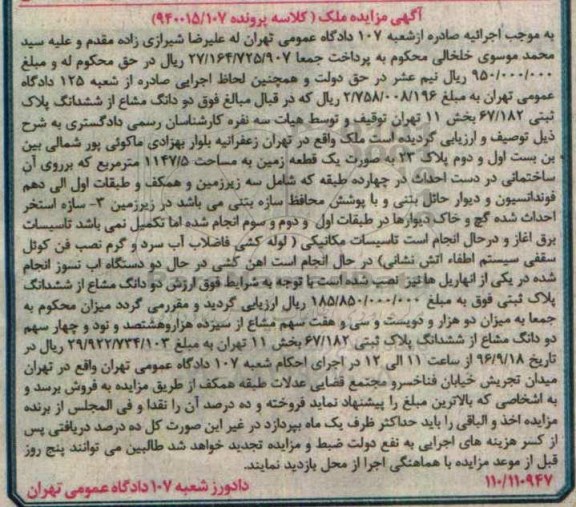 آگهی مزایده ملک (کلاسه پرونده ۹۴۰۰۱۵/۱۰۷)
به موجب اجرائیه صادره ازشعبه ۱۰۷ دادگاه عمومی تهران له علیرضا شیرازی زاده مقدم و علیه سید
محمد موسوی خلخالی محکوم به پرداخت جمعا ۲۷/۱۶۴/۷۲۵/۹۰۷ ریال در حق محکوم له و مبلغ
۹۵۰/۰۰۰/۰۰۰ ریال نیم عشر در حق دولت و همچنین لحاظ اجرایی صادره از شعبه ۱۲۵ دادگاه
عمومی تهران به مبلغ ۲/۷۵۸/۰۰۸/۱۹۶ ریال که در قبال مبالغ فوق دو دانگ مشاع از ششدانگ پلاک
ثبتی ۶۷/۱۸۲ بخش ۱۱ تهران توقیف و توسط هیات سه نفره کارشناسان رسمی دادگستری به شرح
ذیل توصیف و ارزیابی گردیده است ملک واقع در تهران زعفرانیه بلوار بهزادی ماکوئی پور شمالی بین
بن بست اول و دوم پلاک ۲۳ به صورت یک قطعه زمین به مساحت ۱۱۴۷/۵ مترمربع که برروی آن
ساختمانی در دست احداث در چهارده طبقه که شامل سه زیرزمین و همکف و طبقات اول الی دهم
فونداسیون و دیوار حائل بتنی و با پوشش محافظ سازه بتنی می باشد در زیرزمین ۳- سازه استخر
احداث شده گچ و خاک دیوارها در طبقات اول و دوم و سوم انجام شده اما تکمیل نمی باشد تاسیسات
برق اغاز و درحال انجام است تاسیسات مکانیکی ( لوله کشی فاضلاب آب سرد و گرم نصب فن کوئل
سقفی سیستم اطفاء اتش نشانی) در حال انجام است اهن کشی در حال دو دستگاه اب نسوز انجام
شده در یکی از انهاریل ها نیز نصب شده است با توجه به شرایط فوق ارزش دو دانگ مشاع از ششدانگ
پلاک ثبتی فوق به مبلغ ۱۸۵/۸۵۰/۰۰۰/۰۰۰ ریال ارزیابی گردید و مقررمی گردد میزان محکوم به
جمعا به میزان دو هزار و دویست و سی و هفت سهم مشاع از سیزده هزاروهشتصد و نود و چهار سهم
دو دانگ مشاع از ششدانگ پلاک ثبتی ۶۷/۱۸۲ بخش ۱۱ تهران به مبلغ ۲۹/۹۲۲/۷۳۴/۱۰۳ ریال در
تاریخ ۹۶/۹/۱۸ از ساعت ۱۱ الی ۱۲ در اجرای احکام شعبه ۱۰۷ دادگاه عمومی تهران واقع در تهران
میدان تجریش خیابان فناخسرو مجتمع قضایی عدالت طبقه همکف از طریق مزایده به فروش برسد و
به اشخاصی که بالاترین مبلغ را پیشنهاد نماید فروخته و ده درصد آن را نقدا و فی المجلس از برنده
مزایده اخذ و الباقی را باید حداکثر ظرف یک ماه بپردازد در غیر این صورت کل ده درصد دریافتی پس
از کسر هزینه های اجرایی به نفع دولت ضبط و مزایده تجدید خواهد شد طالبین می توانند پنج روز
قبل از موعد مزایده با هماهنگی اجرا از محل بازدید نمایند.
۱۱۰/۱۱۰۹۴۷ دادورز شعبه ۱۰۷ دادگاه عمومی تهران